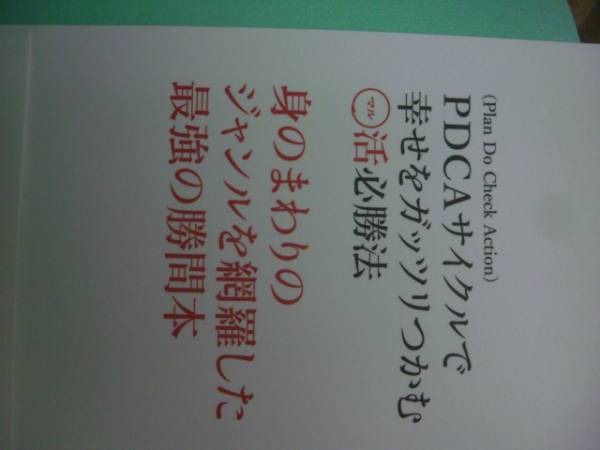 (Plan Do Check Action)
PDCAサイクルで
幸せをガッツリつかむ
マル活必勝法
身のまわりの
ジャンルを網羅した
最強の勝間本